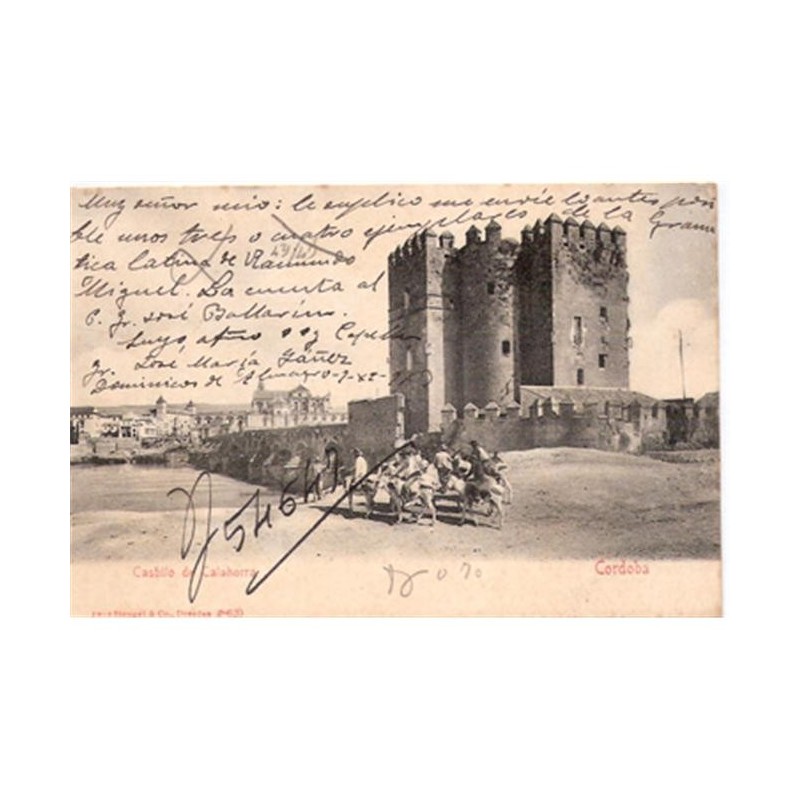 Muy señor mio: le suplico me envíe lo antes posi
ble unos tres o cuatro ejemplares de la Gramá
tica latina de Raimundo
Miguel. La cuenta al
P. Fr. José Ballarín.
Suyo afmo y Capellán
Fr. José María Yáñez
Dominicos de Almagro
54642
Castilo de Calahorra
Cordoba
& Co., Dresden